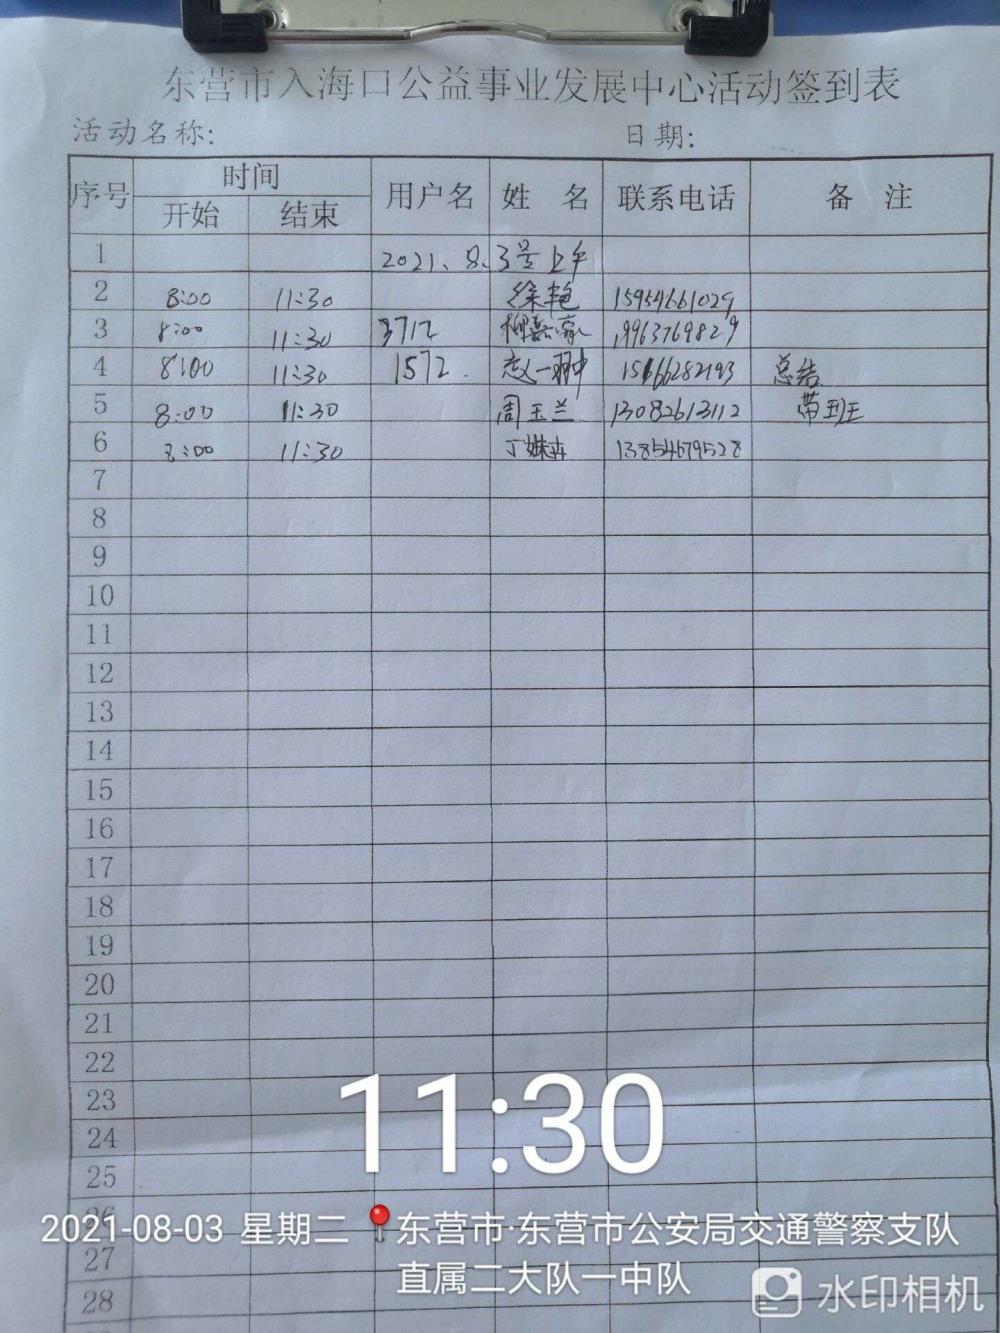 东营市入海口公益事业发展中心活动签到表
活动名称: 日期:
序号 时间 用户名 姓 名 联系电话 备 注
开始 结束
1 2021、8.3号上午
2 8:00 11:30 徐艳 15954661029
3 8:00 11:30 3712 19963769829
4 8:00 11:30 1572. 赵一翀 15166282193 总结
5 8:00 11:30 周玉兰 13082613112 带班
6 8:00 11:30 丁姝卉 13854679528
7
8
9
10
11
12
13
14
15
16
17
18
19
20
21
22
23
24
25
26
27
28
11:30
2021-08-03 星期二 东营市·东营市公安局交通警察支队
直属二大队一中队
水印相机